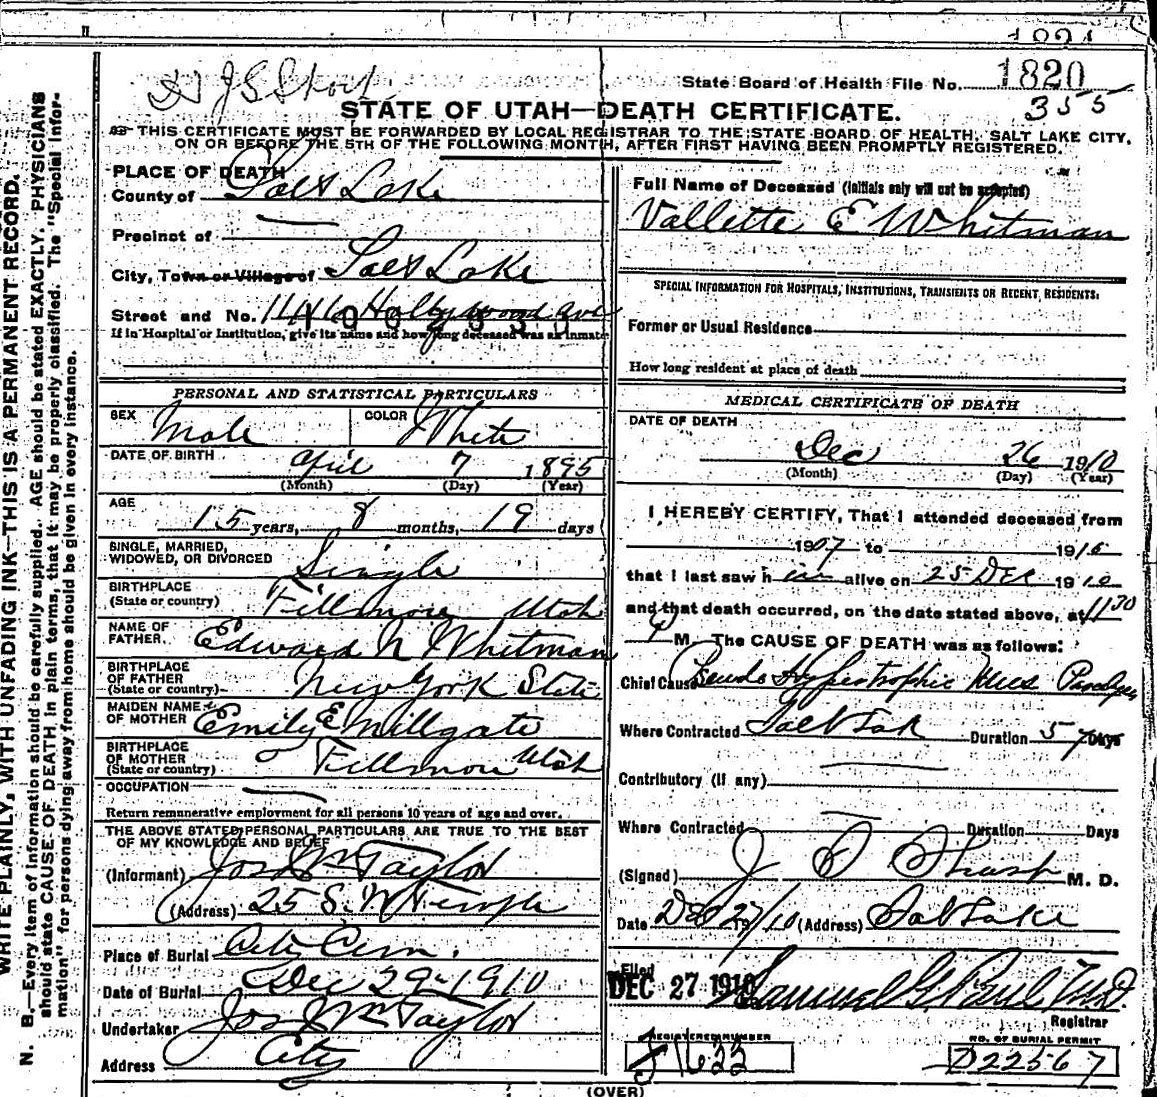 State Board of Health File No. 1820
355
STATE OF UTAH—DEATH CERTIFICATE.
THIS CERTIFICATE MUST BE FORWARDED BY LOCAL REGISTRAR TO THE STATE BOARD OF HEALTH, SALT LAKE CITY,
ON OR BEFORE THE 5TH OF THE FOLLOWING MONTH, AFTER FIRST HAVING BEEN PROMPTLY REGISTERED.
PLACE OF DEATH
County of Salt Lake
Precinct of
City, Town or Village of Salt Lake
Street and No. 1146 Hollywood Ave
If in Hospital or Institution, give its name and how long deceased was an inmate
PERSONAL AND STATISTICAL PARTICULARS
SEX Male COLOR White
DATE OF BIRTH April 7 1895
(Month) (Day) (Year)
AGE 15 years, 8 months, 19 days
SINGLE, MARRIED,
WIDOWED, OR DIVORCED Single
BIRTHPLACE
(State or country) Fillmore Utah
NAME OF
FATHER Edward N Whitman
BIRTHPLACE
OF FATHER
(State or country) New York State
MAIDEN NAME
OF MOTHER Emily E Millgate
BIRTHPLACE
OF MOTHER
(State or country) Fillmore Utah
OCCUPATION
Return remunerative employment for all persons 10 years of age and over.
THE ABOVE STATED PERSONAL PARTICULARS ARE TRUE TO THE BEST
OF MY KNOWLEDGE AND BELIEF
(Informant) Jos Wm Taylor
(Address) 25 S. W Temple
Place of Burial City Cem.
Date of Burial Dec 29-1910
Undertaker Jos Wm Taylor
Address City
Full Name of Deceased (Initials only will not be accepted)
Vallette E Whitman
SPECIAL INFORMATION FOR HOSPITALS, INSTITUTIONS, TRANSIENTS OR RECENT RESIDENTS:
Former or Usual Residence
How long resident at place of death
MEDICAL CERTIFICATE OF DEATH
DATE OF DEATH
Dec 26 1910
(Month) (Day) (Year)
I HEREBY CERTIFY, That I attended deceased from
1907 to 1910
that I last saw him alive on 25 Dec 1910
and that death occurred, on the date stated above, at 11 30
M. The CAUSE OF DEATH was as follows:
Chief Cause Pseudo Hypertrophic Musc Paralysis
Where Contracted Salt Lak Duration 5 y Days
Contributory (if any)
Where Contracted Duration Days
(Signed) J S Sharp M. D.
Date Dec 27/10 (Address) Salt Lake
Filed
DEC 27 1910 Samuel G Paul M.D.
Registrar
REGISTERED NUMBER NO. OF BURIAL PERMIT
J1622 D22567
(OVER)
WRITE PLAINLY, WITH UNFADING INK—THIS IS A PERMANENT RECORD.
N. B.—Every item of information should be carefully supplied. AGE should be stated EXACTLY. PHYSICIANS
should state CAUSE OF DEATH in plain terms, that it may be properly classified. The "Special Infor-
mation" for persons dying away from home should be given in every instance.